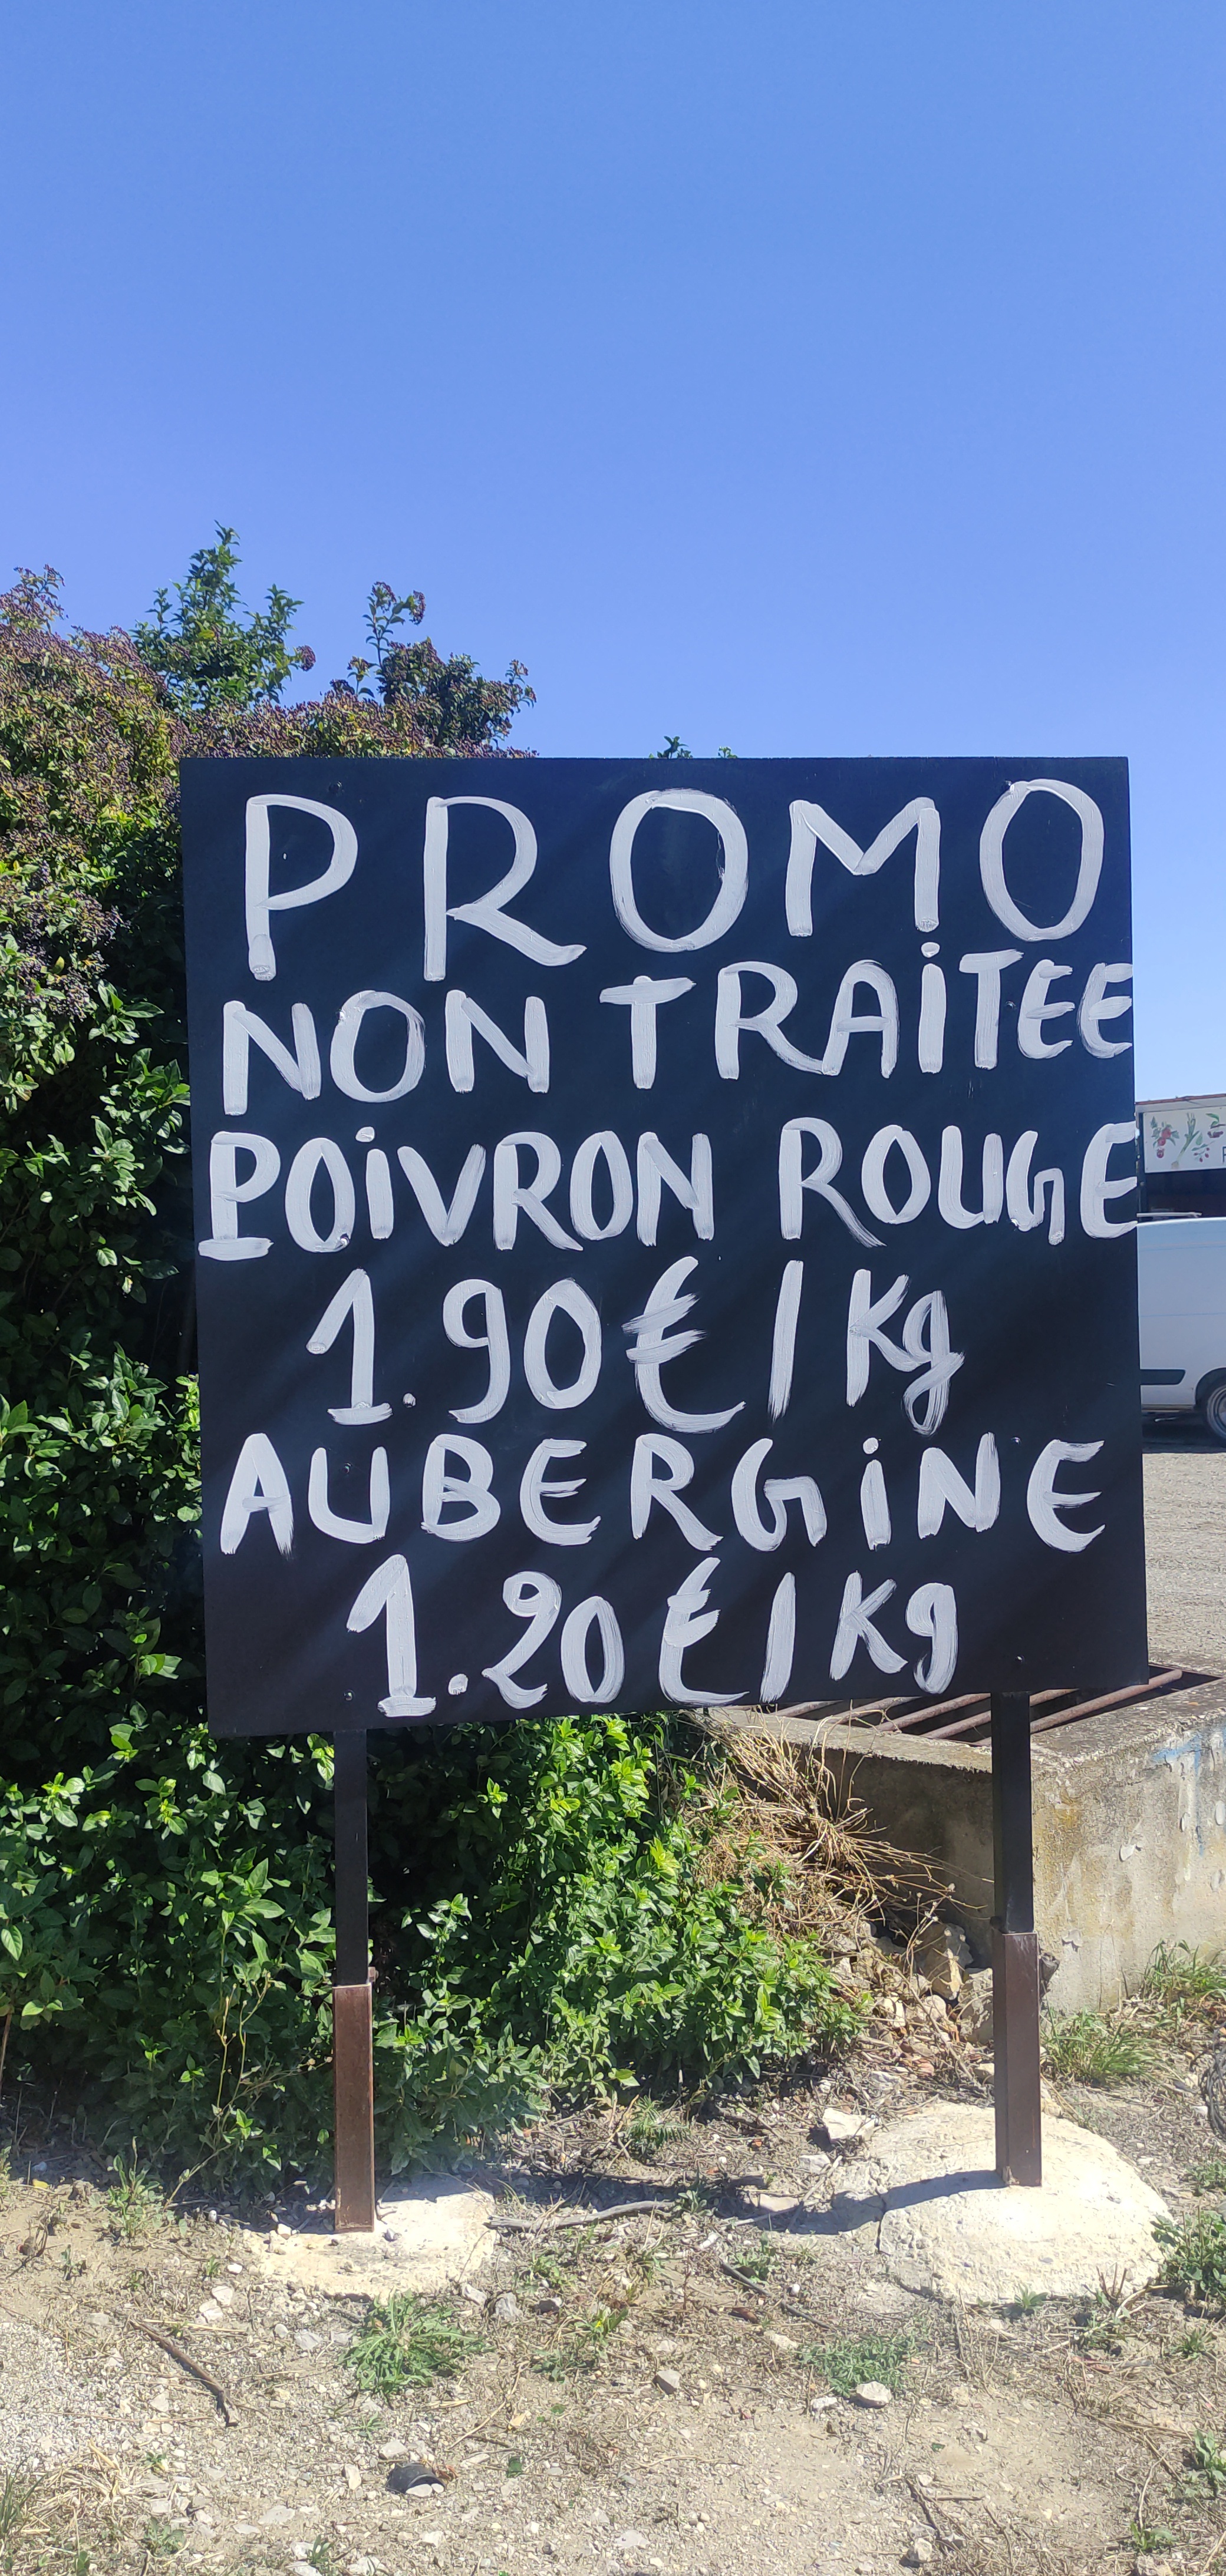 PROMO
NON TRAITEE
POiVRON ROUGE
1.90€/Kg
AUBERGiNE
1.20€/Kg